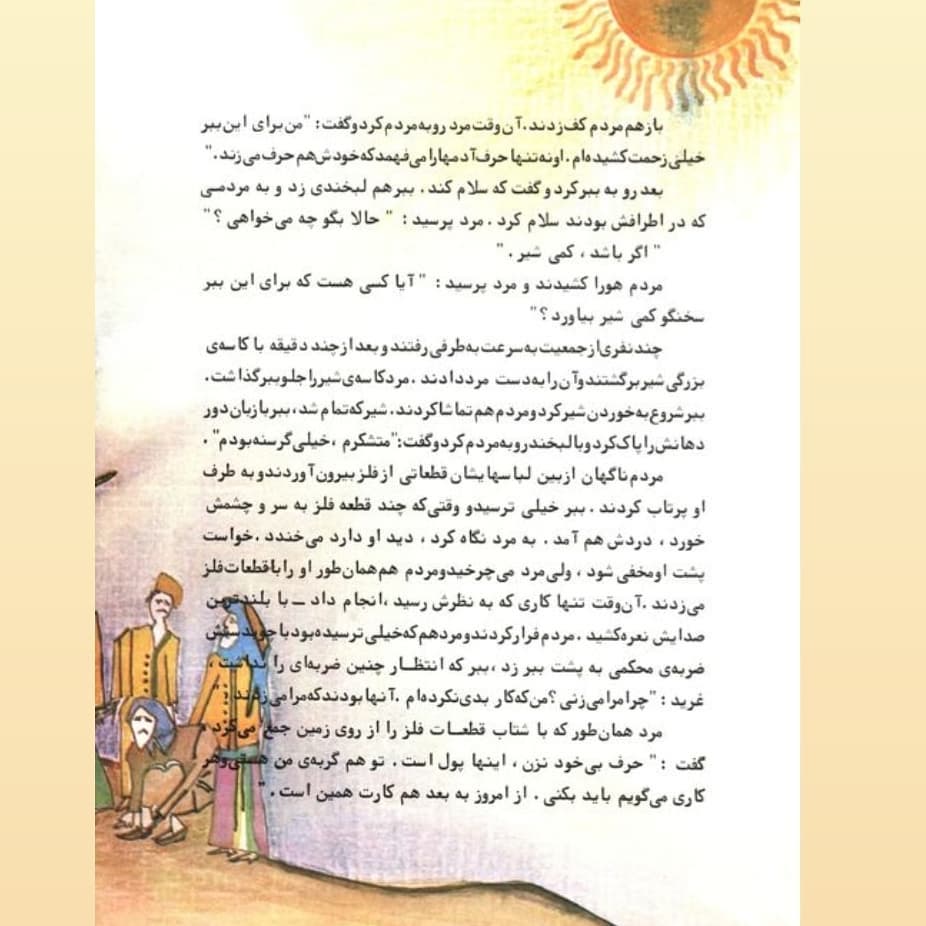 بازهم مردم کف زدند. آن وقت مرد رو به مردم کرد و گفت: "من برای این ببر
خیلی زحمت کشیده‌ام. او نه تنها حرف آدمها را می‌فهمد که خودش هم حرف می‌زند."
بعد رو به ببر کرد و گفت که سلام کند. ببر هم لبخندی زد و به مردمی
که در اطرافش بودند سلام کرد. مرد پرسید: "حالا بگو چه می‌خواهی؟"
"اگر باشد، کمی شیر."
مردم هورا کشیدند و مرد پرسید: "آیا کسی هست که برای این ببر
سخنگو کمی شیر بیاورد؟"
چند نفری از جمعیت به سرعت به طرفی رفتند و بعد از چند دقیقه با کاسه‌ی
بزرگی شیر برگشتند و آن را به دست مرد دادند. مرد کاسه‌ی شیر را جلو ببر گذاشت.
ببر شروع به خوردن شیر کرد و مردم هم تماشا کردند. شیر که تمام شد، ببر با زبان دور
دهانش را پاک کرد و با لبخند رو به مردم کرد و گفت: "متشکرم، خیلی گرسنه بودم".
مردم ناگهان از بین لباسهایشان قطعاتی از فلز بیرون آوردند و به طرف
او پرتاب کردند. ببر خیلی ترسید و وقتی که چند قطعه فلز به سر و چشمش
خورد، دردش هم آمد. به مرد نگاه کرد، دید او دارد می‌خندد. خواست
پشت او مخفی شود، ولی مرد می‌چرخید و مردم هم همان‌طور او را با قطعات فلز
می‌زدند. آن وقت تنها کاری که به نظرش رسید، انجام داد ــ با بلندترین
صدایش نعره کشید. مردم فرار کردند و مرد هم که خیلی ترسیده بود با چوبدستش
ضربه‌ی محکمی به پشت ببر زد، ببر که انتظار چنین ضربه‌ای را نداشت،
غرید: "چرا مرا می‌زنی؟ من که کار بدی نکرده‌ام. آنها بودند که مرا می‌زدند."
مرد همان‌طور که با شتاب قطعات فلز را از روی زمین جمع می‌کرد،
گفت: "حرف بی‌خود نزن، اینها پول است. تو هم گربه‌ی من هستی و هر
کاری می‌گویم باید بکنی. از امروز به بعد هم کارت همین است."